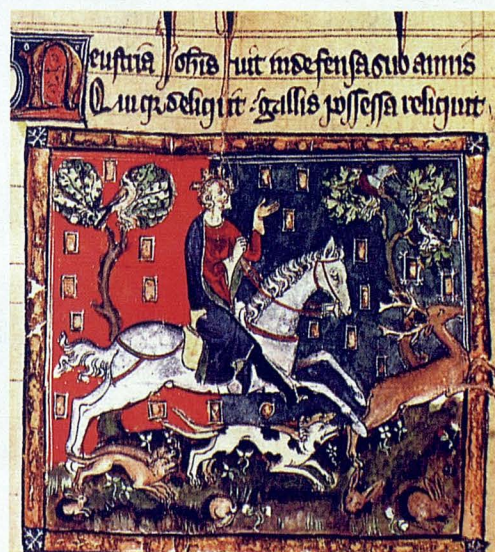 Neustria Johis ruit indefensa sub annis
Qui qr deliquit gallis possessa reliquit